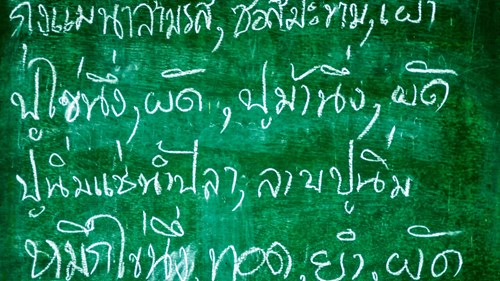 กุ้งแม่น้ำสามรส, ซอสมะขาม, เผา
ปูไข่นึ่ง, ผัด, ปูม้านึ่ง, ผัด
ปูนิ่มแช่น้ำปลา, ลาบปูนิ่ม
หมึกไข่นึ่ง, ทอด, ยำ, ผัด